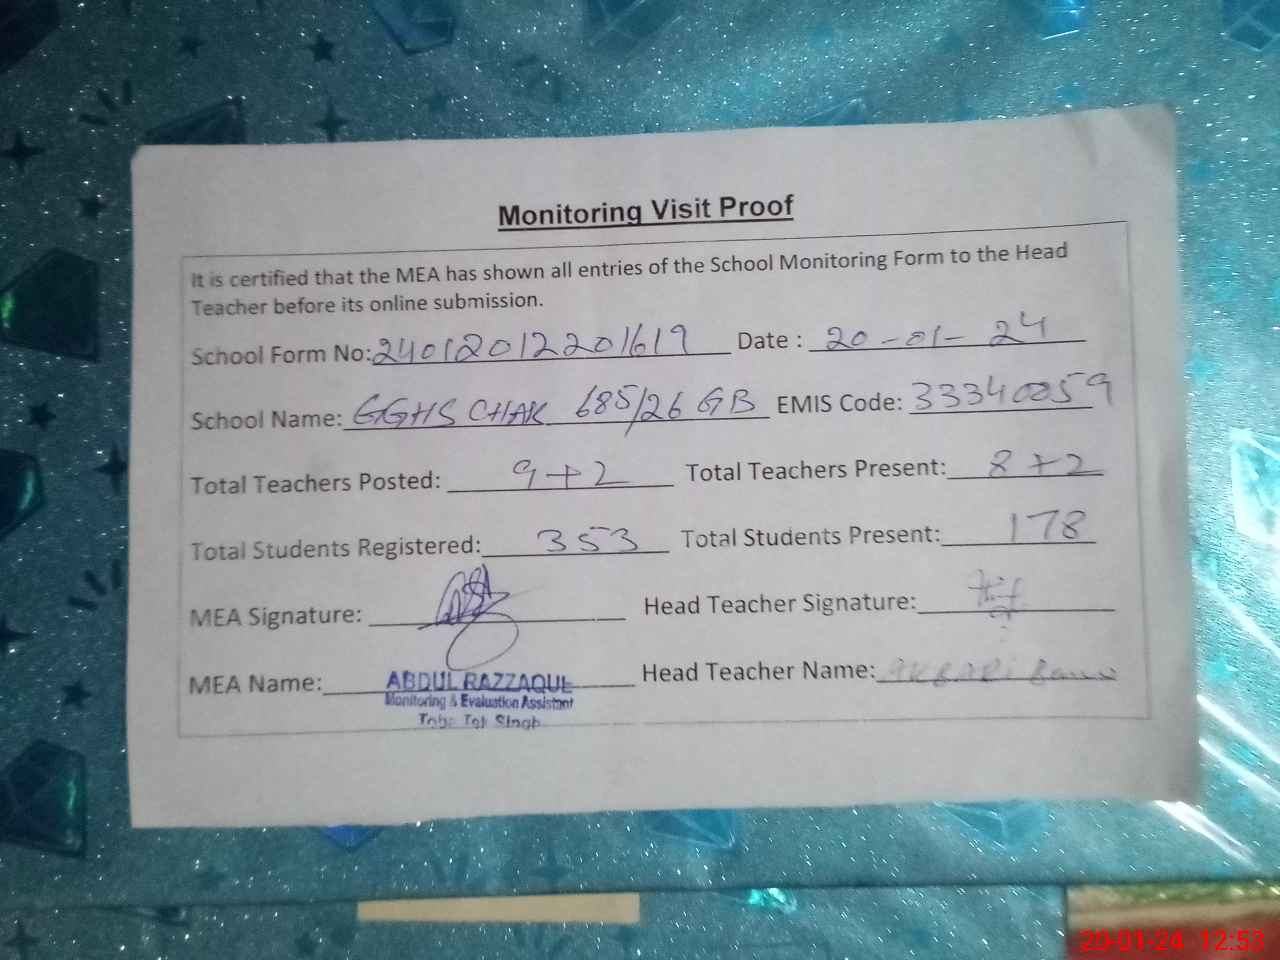 Monitoring Visit Proof
It is certified that the MEA has shown all entries of the School Monitoring Form to the Head
Teacher before its online submission.
School Form No: 240120122201619 Date : 20-01-24
School Name: GGHS CHAK 685/26 GB EMIS Code: 33340059
Total Teachers Posted: 9+2 Total Teachers Present: 8+2
Total Students Registered: 353 Total Students Present: 178
MEA Signature: Head Teacher Signature:
MEA Name: ABDUL RAZZAQUE Head Teacher Name: AKBARI
Monitoring & Evaluation Assistant
Toba Tek Singh
20-01-24 12:53